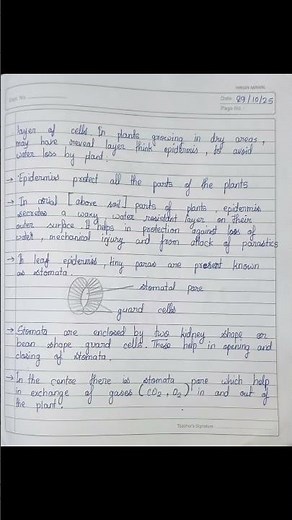 Date: 29/10/25
Page No.
layer of cells. In plants growing in dry areas,
may have several layer thick epidermis, to avoid
water loss by plant.
→ Epidermis protect all the parts of the plants
→ In arial [above soil] parts of plants, epidermis
secretes a waxy water resistant layer on their
outer surface. It helps in protection against loss of
water, mechanical injury and from attack of parasitics
→ In leaf epidermis, tiny poras are present known
as stomata.
stomatal pore
guard cells
→ Stomata are enclosed by two kidney shape or
bean shape guard cells. These help in opening and
closing of stomata.
→ In the centre there is stomata pore which help
in exchange of gases (CO2, O2) in and out of
the plant.
Teacher's Signature